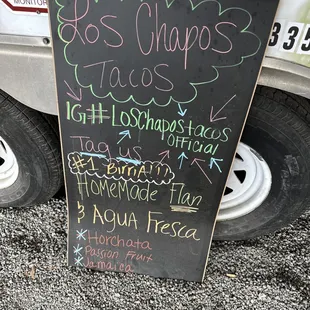 MONITOR
335
Los Chapos
Tacos
IG#LosChapostacos
official
Tag us
#1 BirriA!!!
HomeMade Flan
& Agua Fresca
* Horchata
* Passion Fruit
* Jamaica